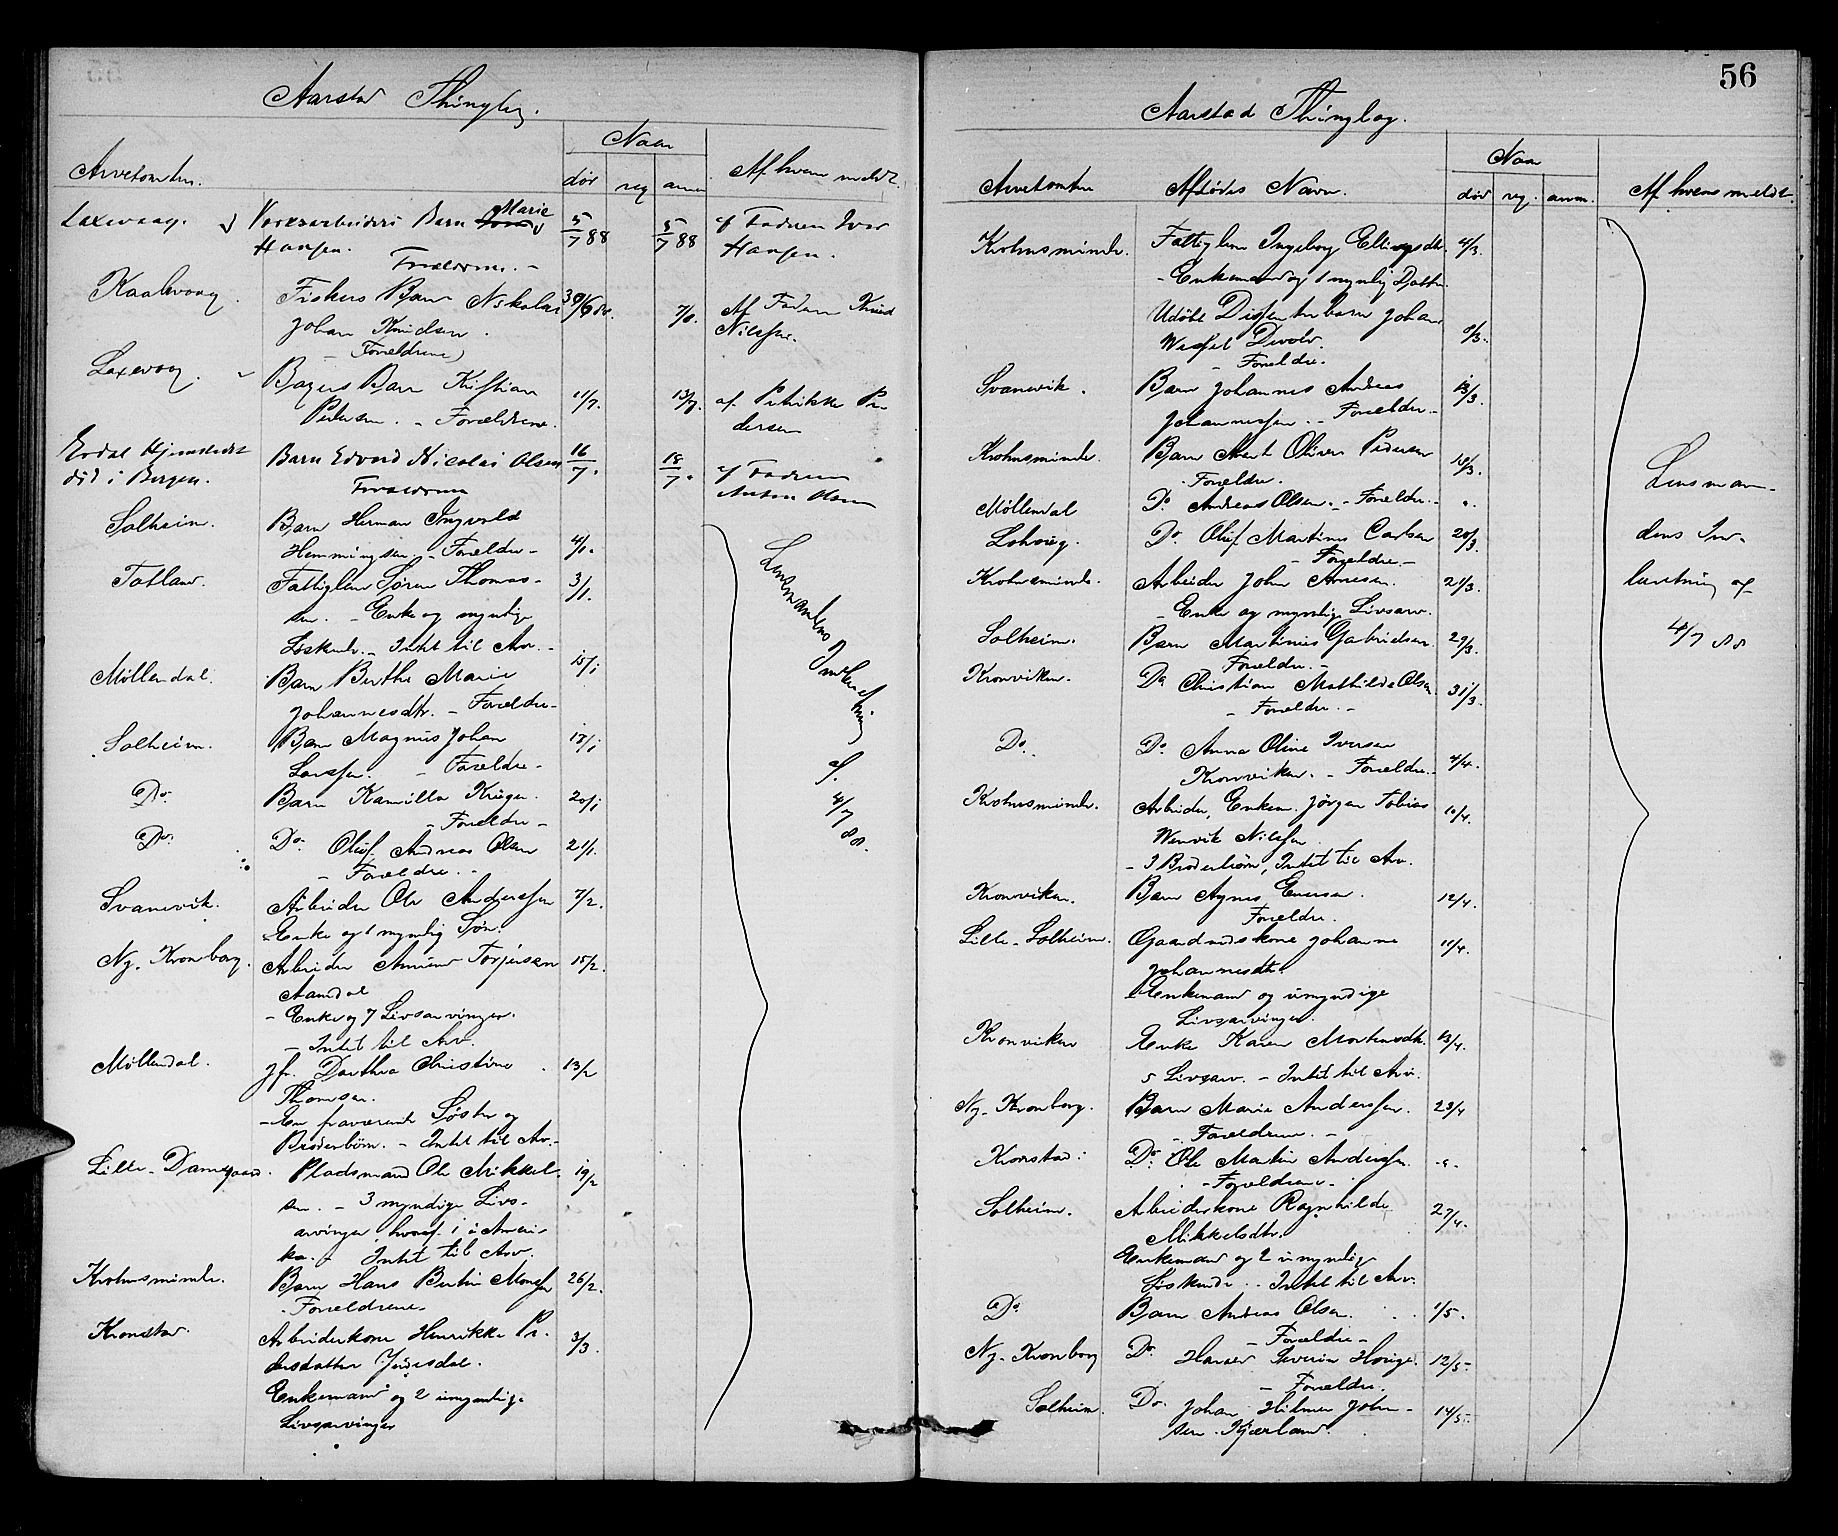 Aarstad Thinglag.
Arvetomten.
Naar
død reg anm
Af hvem meldt.
Laxevaag. Værksarbeiders Barn Marie
Hansen.
Forældrene. –
5/7 88 5/7 88
af Faderen Iver
Hansen.
Fiskers Barn Nikolai
Johan Knudsen.
– Forældrene
30/6 88. 7/8.
Af Faderen Knud
Nilssen.
Laxevaag. Bagers Barn Kristian
Pedersen. – Forældrene.
11/7. 13/7.
af Petrikke Pe-
dersen
i Bergen.
Barn Edvard Nicolai Olsen
Forældrene
16/7. 18/7.
af Faderen
Anton Olsen
Solheim. Barn Herman Ingvald
Hemmingsen. – Forældre –
4/1.
Fattiglem Søren Thomas-
sen. – Enke og myndige
Søskende. – Intet til Arv. –
3/1.
Møllendal. Barn Berthe Marie
Johannesdtr. – Forældre –
15/1
Solheim. Barn Magnus Johan
Larssen. – Forældre –
17/1
Do. Barn Kamilla Krüger.
– Forældre –
20/1
Do. Do. Oluf Andreas Olsen
– Forældre. –
21/1.
Svanevik. Arbeider Ole Anderssen
– Enke og 1 myndig Søn.
7/2.
Ny-Kronborg. Arbeider Torjersen
Aamdal
– Enke og 7 Livsarvinger.
– Intet til Arv.
15/2.
Møllendal. Jfr. Dorthea Christine
Thomsen.
– En fraværende Søster og
Broderbørn. – Intet til Arv. –
13/2
Lille-Damsgaard. Pladsmand Ole Mikkel-
sen. – 3 myndige Livs-
arvinger, hvoraf 1 i Ameri-
ka. – Intet til Arv.
19/2
Krohnsminde. Barn Hans Bertin Monsen
– Forældrene
26/2.
Kronstad. Arbeiderkone Henrikke Pe-
dersdatter
Enkemand og 2 umyndige
Livsarvinger
3/3.
Lensmandens Indberetning
af
4/7
88.
56
Aarstad Thinglag.
Arvetomten Afdødes Navn.
Naar
død reg. anm.
Af hvem meldt.
Krohnsminde. Fattiglem Ingeborg Ellingsdtr.
– Enkemand og 1 myndig Datter.
4/3.
Udøbt Dissenterbarn Johan
Wessel
– Forældre.
Svanevik. Barn Johannes Andreas
Johannessen. – Forældre –
13/3.
Krohnsminde. Barn Oliver Pedersen
– Forældre.
Møllendal Do. Andreas Olsen. – Forældre. – "
Do. Oluf Martinus Carlsen
– Forældre –
20/3.
Krohnsminde. Arbeider John Arnesen.
– Enke og myndige Livsarv.
21/3.
Solheim. Barn Martinus Gabrielsen
Forældre. –
29/3.
Kronviken. Do Christian Mathilde Olsen
– Forældre. –
31/3.
Do. Do. Anna Oline Iversen
Kronviken. – Forældre. –
4/4.
Krohnsminde. Arbeider, Enkem. Jørgen Tobias
Nilssen.
– 3 Broderbørn, Intet til Arv.
10/4.
Kronviken. Barn Agnes
Forældre.
12/4.
Lille-Solheim. Gaardmandskone Johanne
Johannesdtr.
Enkemand og umyndige
Livsarvinger.
11/4.
Kronviken Enke Karen Mortensdtr.
5 Livsarv. – Intet til Arv.
13/4.
Ny-Kronborg. Barn Marie Anderssen.
– Forældrene. –
23/4
Kronstad. Do. Ole Martin Anderssen.
– Forældrene –
Solheim. Arbeiderkone Ragnhilde
Mikkelsdtr.
Enkemand og 2 umyndige
Søskende. – Intet til Arv.
27/4.
Do Barn Andreas Olsen.
– Forældre –
1/5.
Ny-Kronborg Do. Severin
– Forældre.
12/5.
Solheim. Do. Johan Hilmer John-
sen Kjærland.
14/5
Lensman-
dens Ind-
beretning af
4/7 88